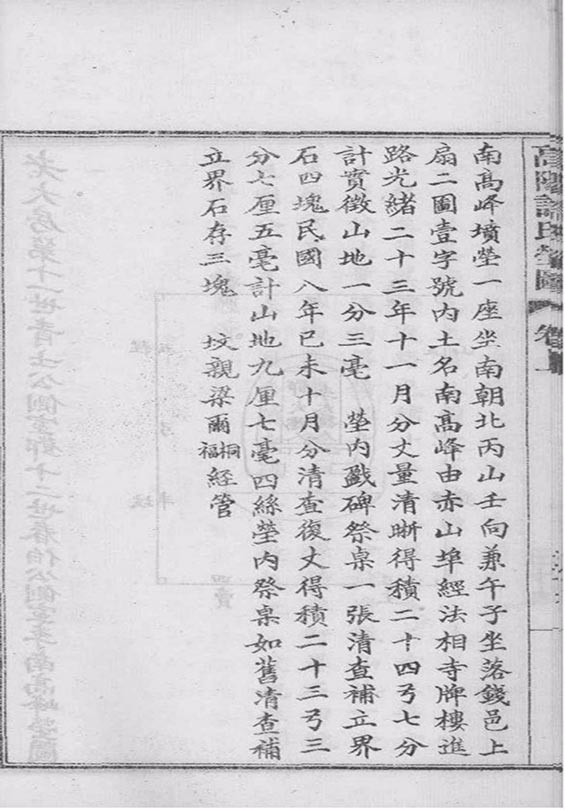 高陽許氏塋圖 卷上
南高峰墳塋一座坐南朝北丙山壬向兼午子坐落錢邑上
扇二圖壹字號内土名南高峰由赤山埠經法相寺牌樓進
路光緒二十三年十一月分丈量清晰得積二十四弓七分
計實徵山地一分三毫 塋内戤碑祭桌一張清查補立界
石四塊民國八年已未十月分清查復丈得積二十三弓三
分七厘五毫計山地九厘七毫四絲塋内祭桌如舊清查補
立界石存三塊 坟親梁爾桐福經管